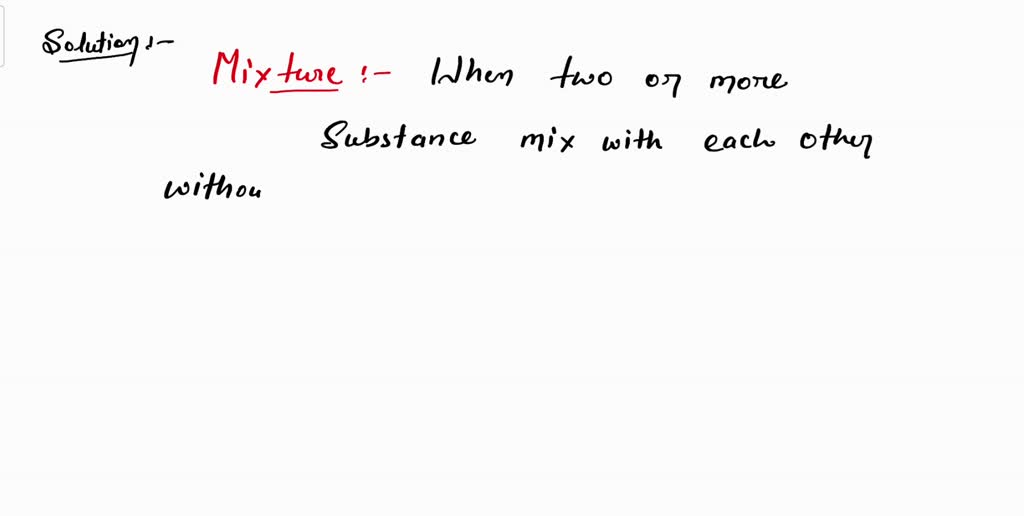 Solution :-
Mixture :- When two or more
Substance mix with each other
withou